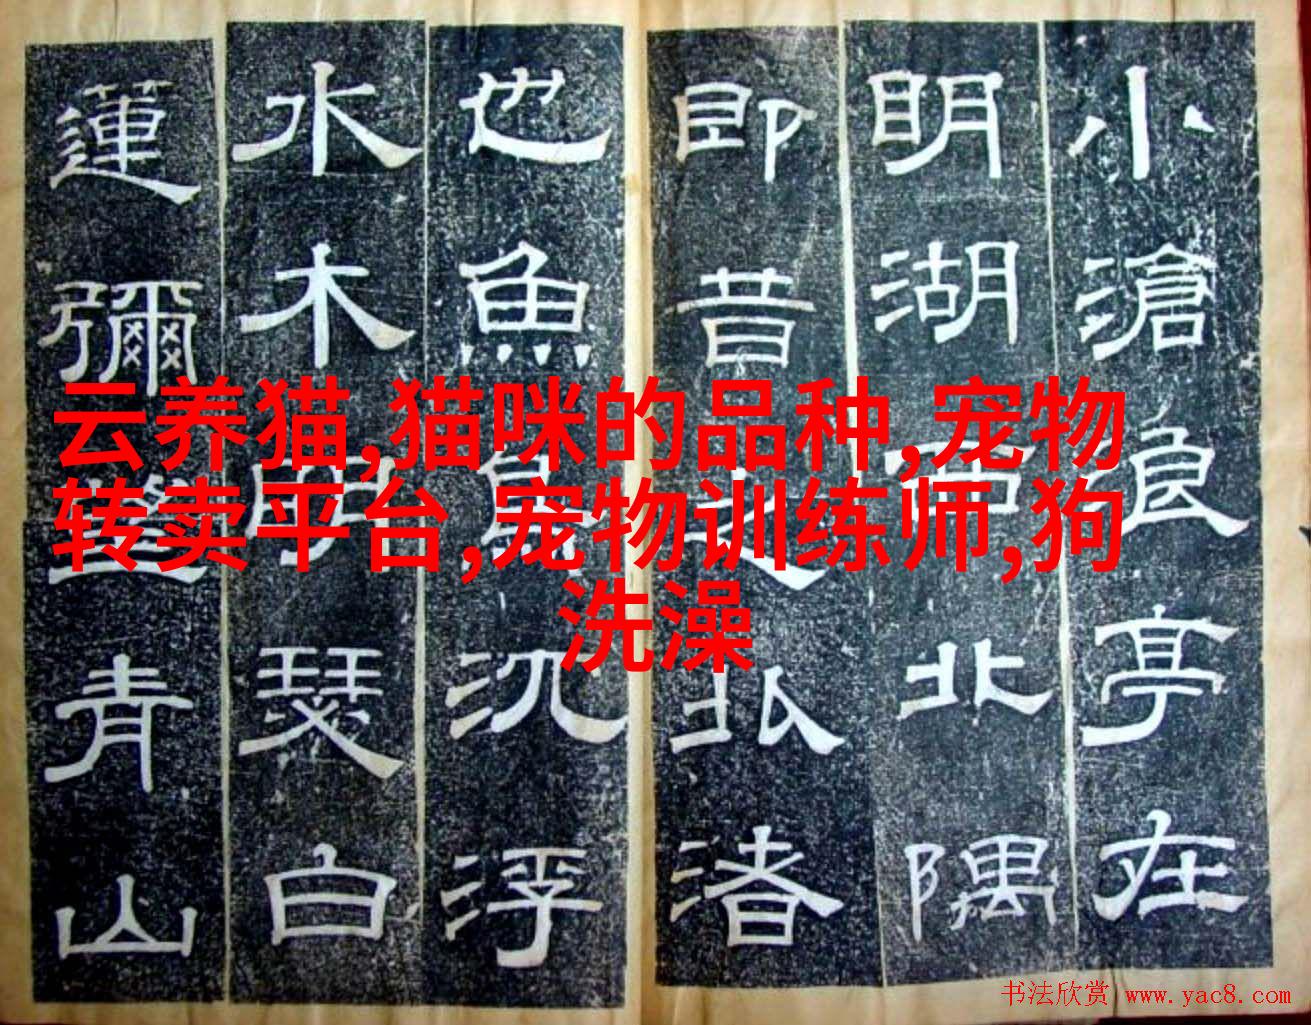 小滄浪亭在
明湖北隅
即昔之北渚
也魚鳥沉浮
水木明瑟白
蓮彌望青山
云养猫,猫咪的品种,宠物
转卖平台,宠物训练师,狗
洗澡
书法欣赏 www.yac8.com